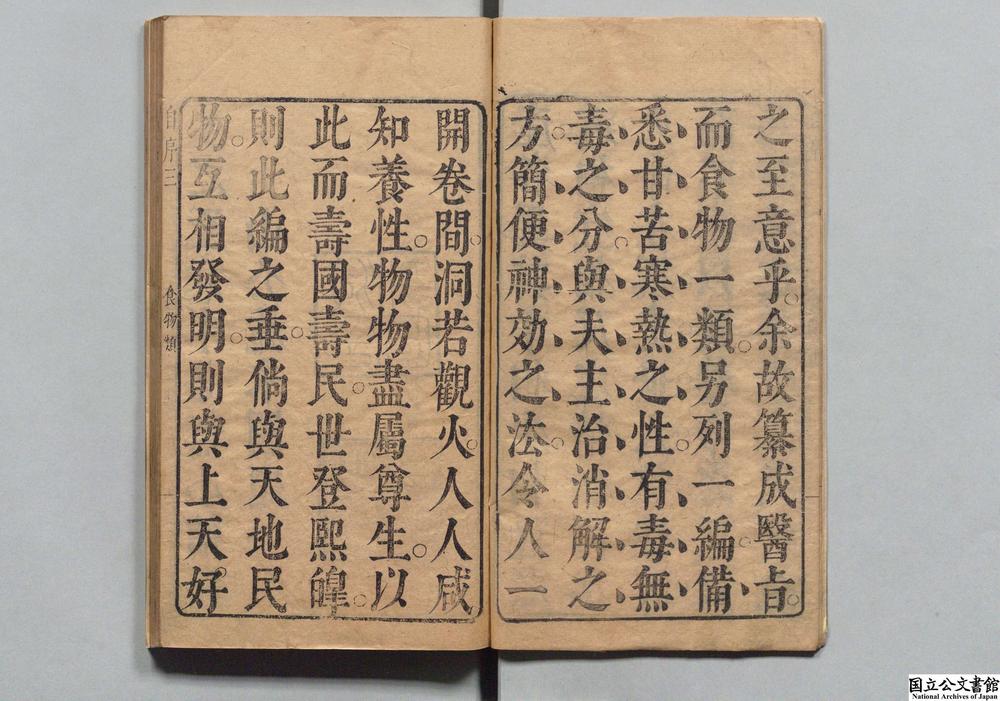 之至意乎。余故纂成醫旨。
而食物一類。另列一編。備
悉甘苦寒熱之性。有毒無
毒之分。與夫主治消解之
方。簡便神効之法。令人一
開卷間。洞若觀火。人人咸
知養性。物物盡屬尊生。以
此而壽國壽民。世登熙皥。
則此編之垂。倘與天地民
物。互相發明。則與上天。好
自序三
食物類
国立公文書館
National Archives of Japan